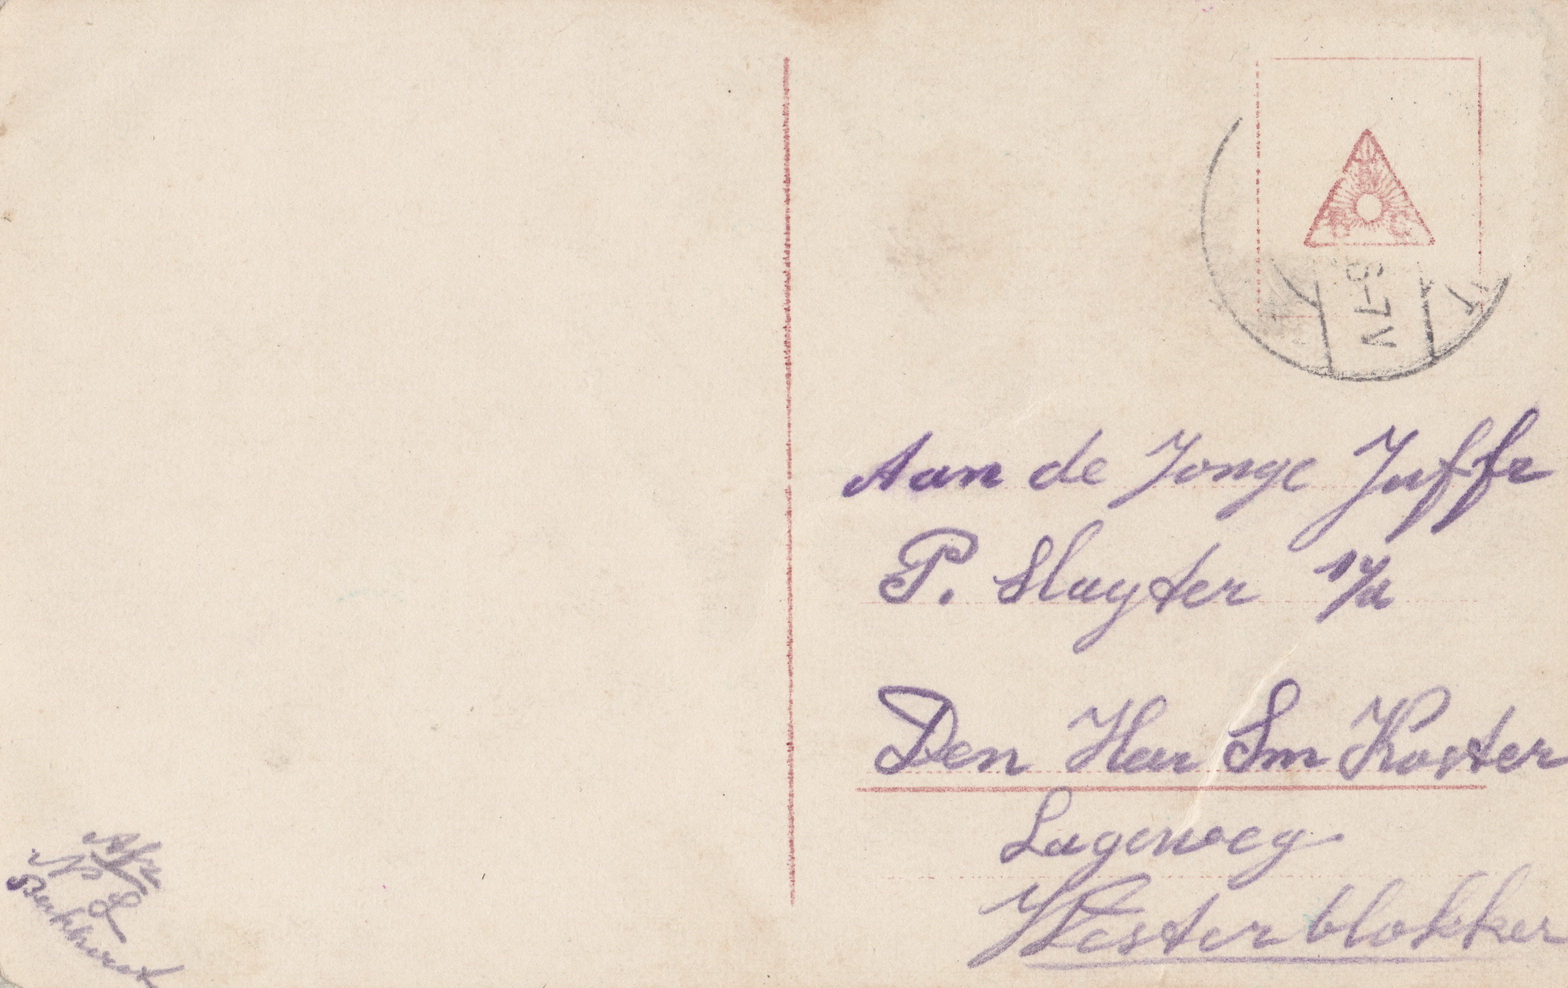 Aan de Jonge Juffr
P. Sluyter 1/a
Den Her Sm Koster
Lageweg
Westerblokker
6-7N
K
N L
Berkhout